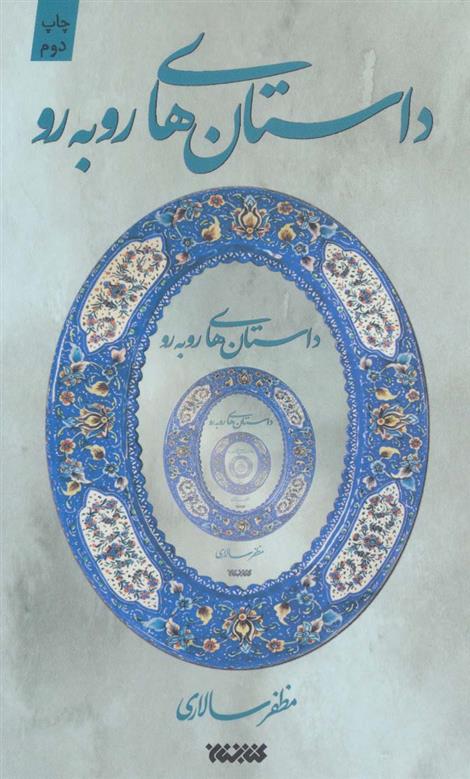 چاپ
دوم
داستان‌های روبه‌رو
داستان‌های روبه‌رو
داستان‌های روبه‌رو
مظفر سالاری
کتابستان
مظفر سالاری
کتابستان